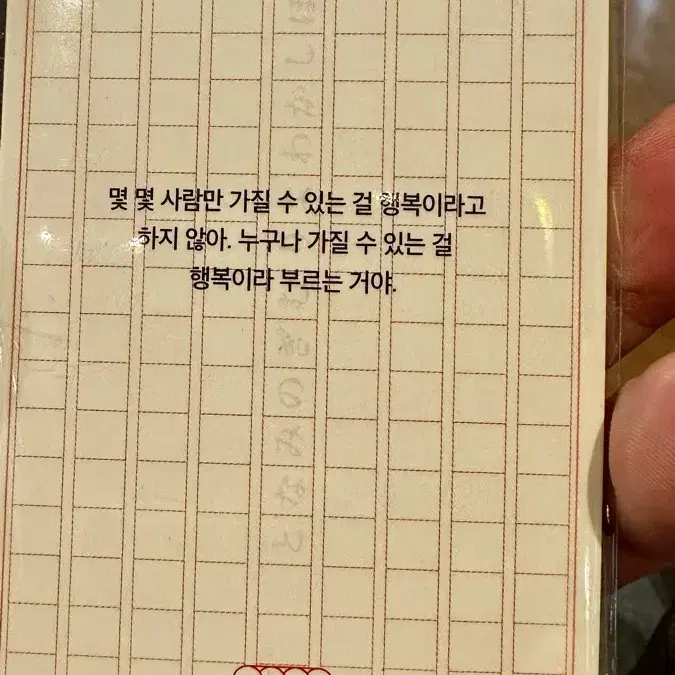 몇 몇 사람만 가질 수 있는 걸 행복이라고
하지 않아. 누구나 가질 수 있는 걸
행복이라 부르는 거야.